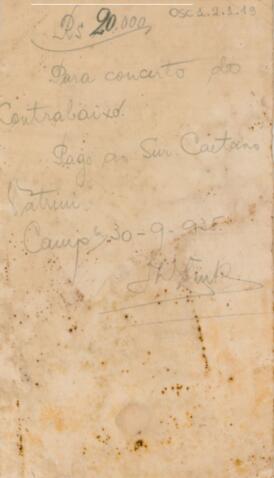 OSC 1.2.1.19
Rs 20.000
Para concerto do
Contrabaixo.
Pago ao Snr. Caetano
Vatrini
Campˢ 30-9-935